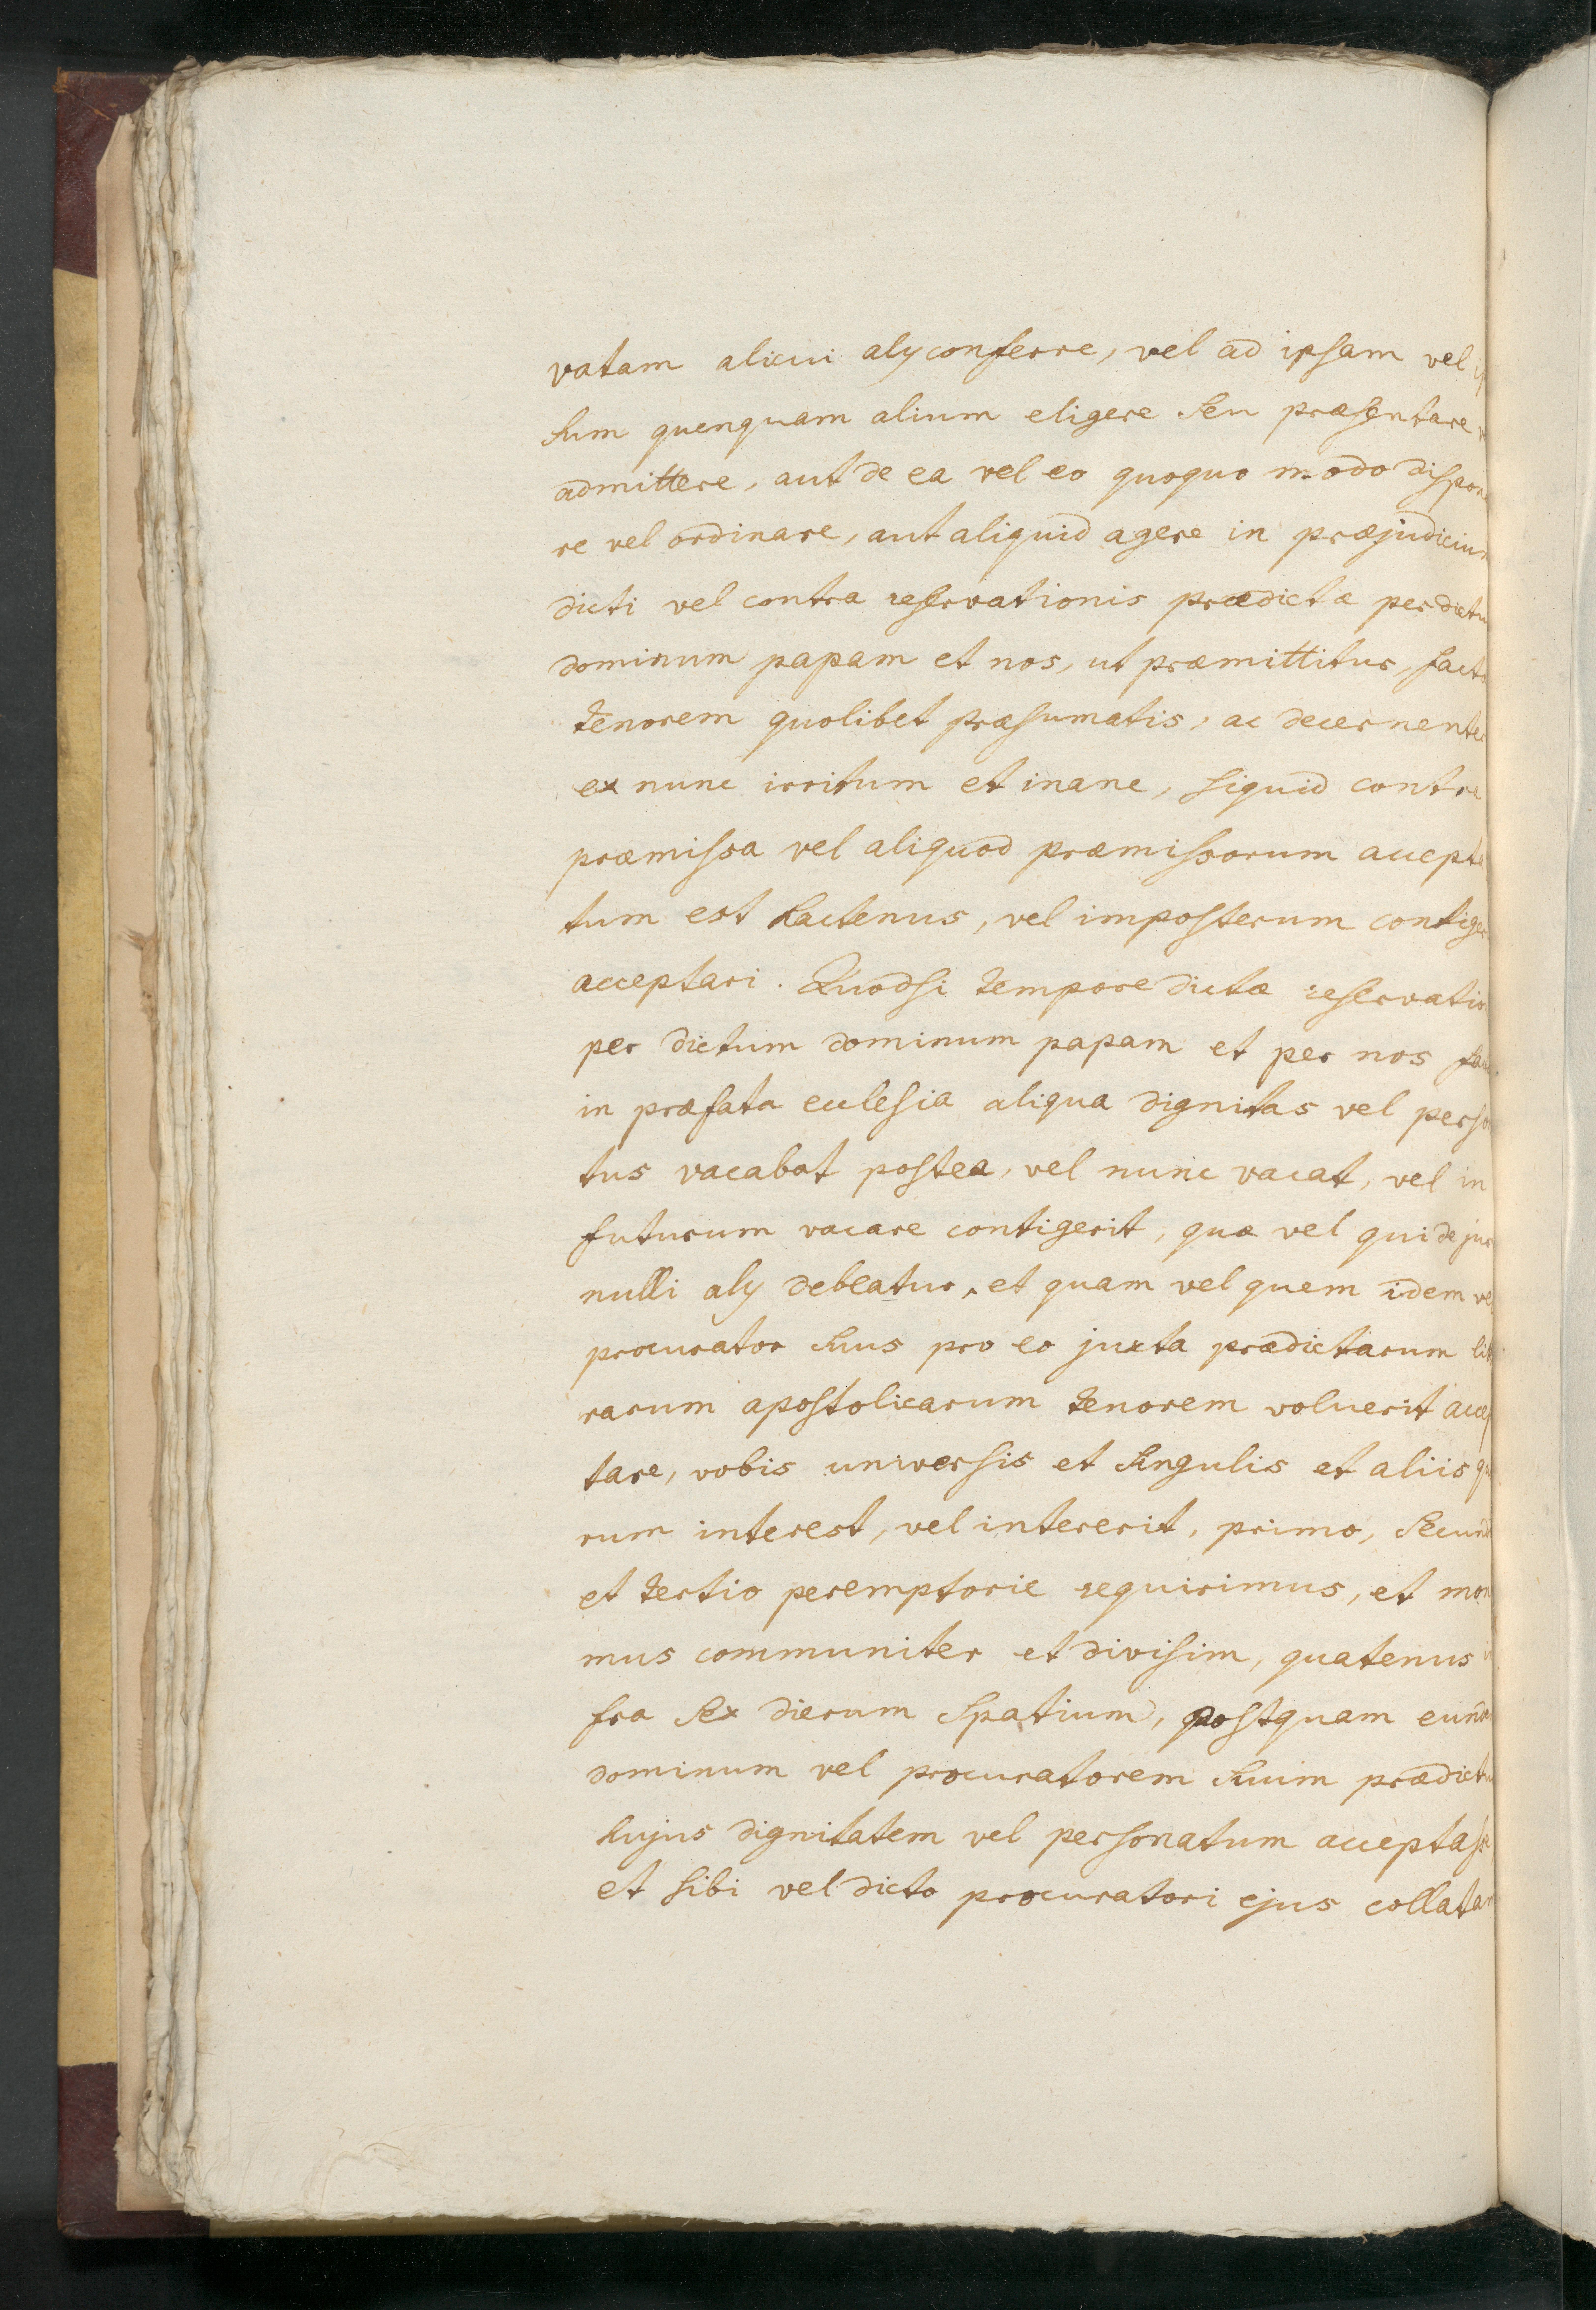 vatam alicui alÿ conferre, vel ad ipsam vel
sum quenquam alium eligere seu præsentare
admittere, aut de ea vel eo quoquo modo dispone
re vel ordinare, aut aliquid agere in præjudicium
dicti vel contra reservationis prædictæ per dictu
dominum papam et nos, ut præmittitur, factæ
tenorem quolibet præsumatis, ac decernentes
ex nunc irritum et inane, siquid contra
præmissa vel aliquod præmissorum accepta
tum est hactenus, vel imposterum contiger
acceptari. Quodsi tempore dictæ reservatio
per dictum dominum papam et per nos fac
in præfata ecclesia aliqua dignitas vel perso
tus vacabat postea, vel nunc vacat, vel in
futurum vacare contigerit, quæ vel qui de jur
nulli alÿ debeatur, et quam vel quem idem vel
procurator suus pro eo juxta prædictarum lit
rarum apostolicarum tenorem voluerit accep
tare, vobis universis et singulis et aliis qu
rum interest, vel intererit, primo, secund
et tertio peremptorie requirimus, et mon
mus communiter et divisim, quatenus in
fra sex dierum spatium, postquam eund
dominum vel procuratorem suum prædictu
hujus dignitatem vel personatum acceptass
et sibi vel dicto procuratori ejus collatam